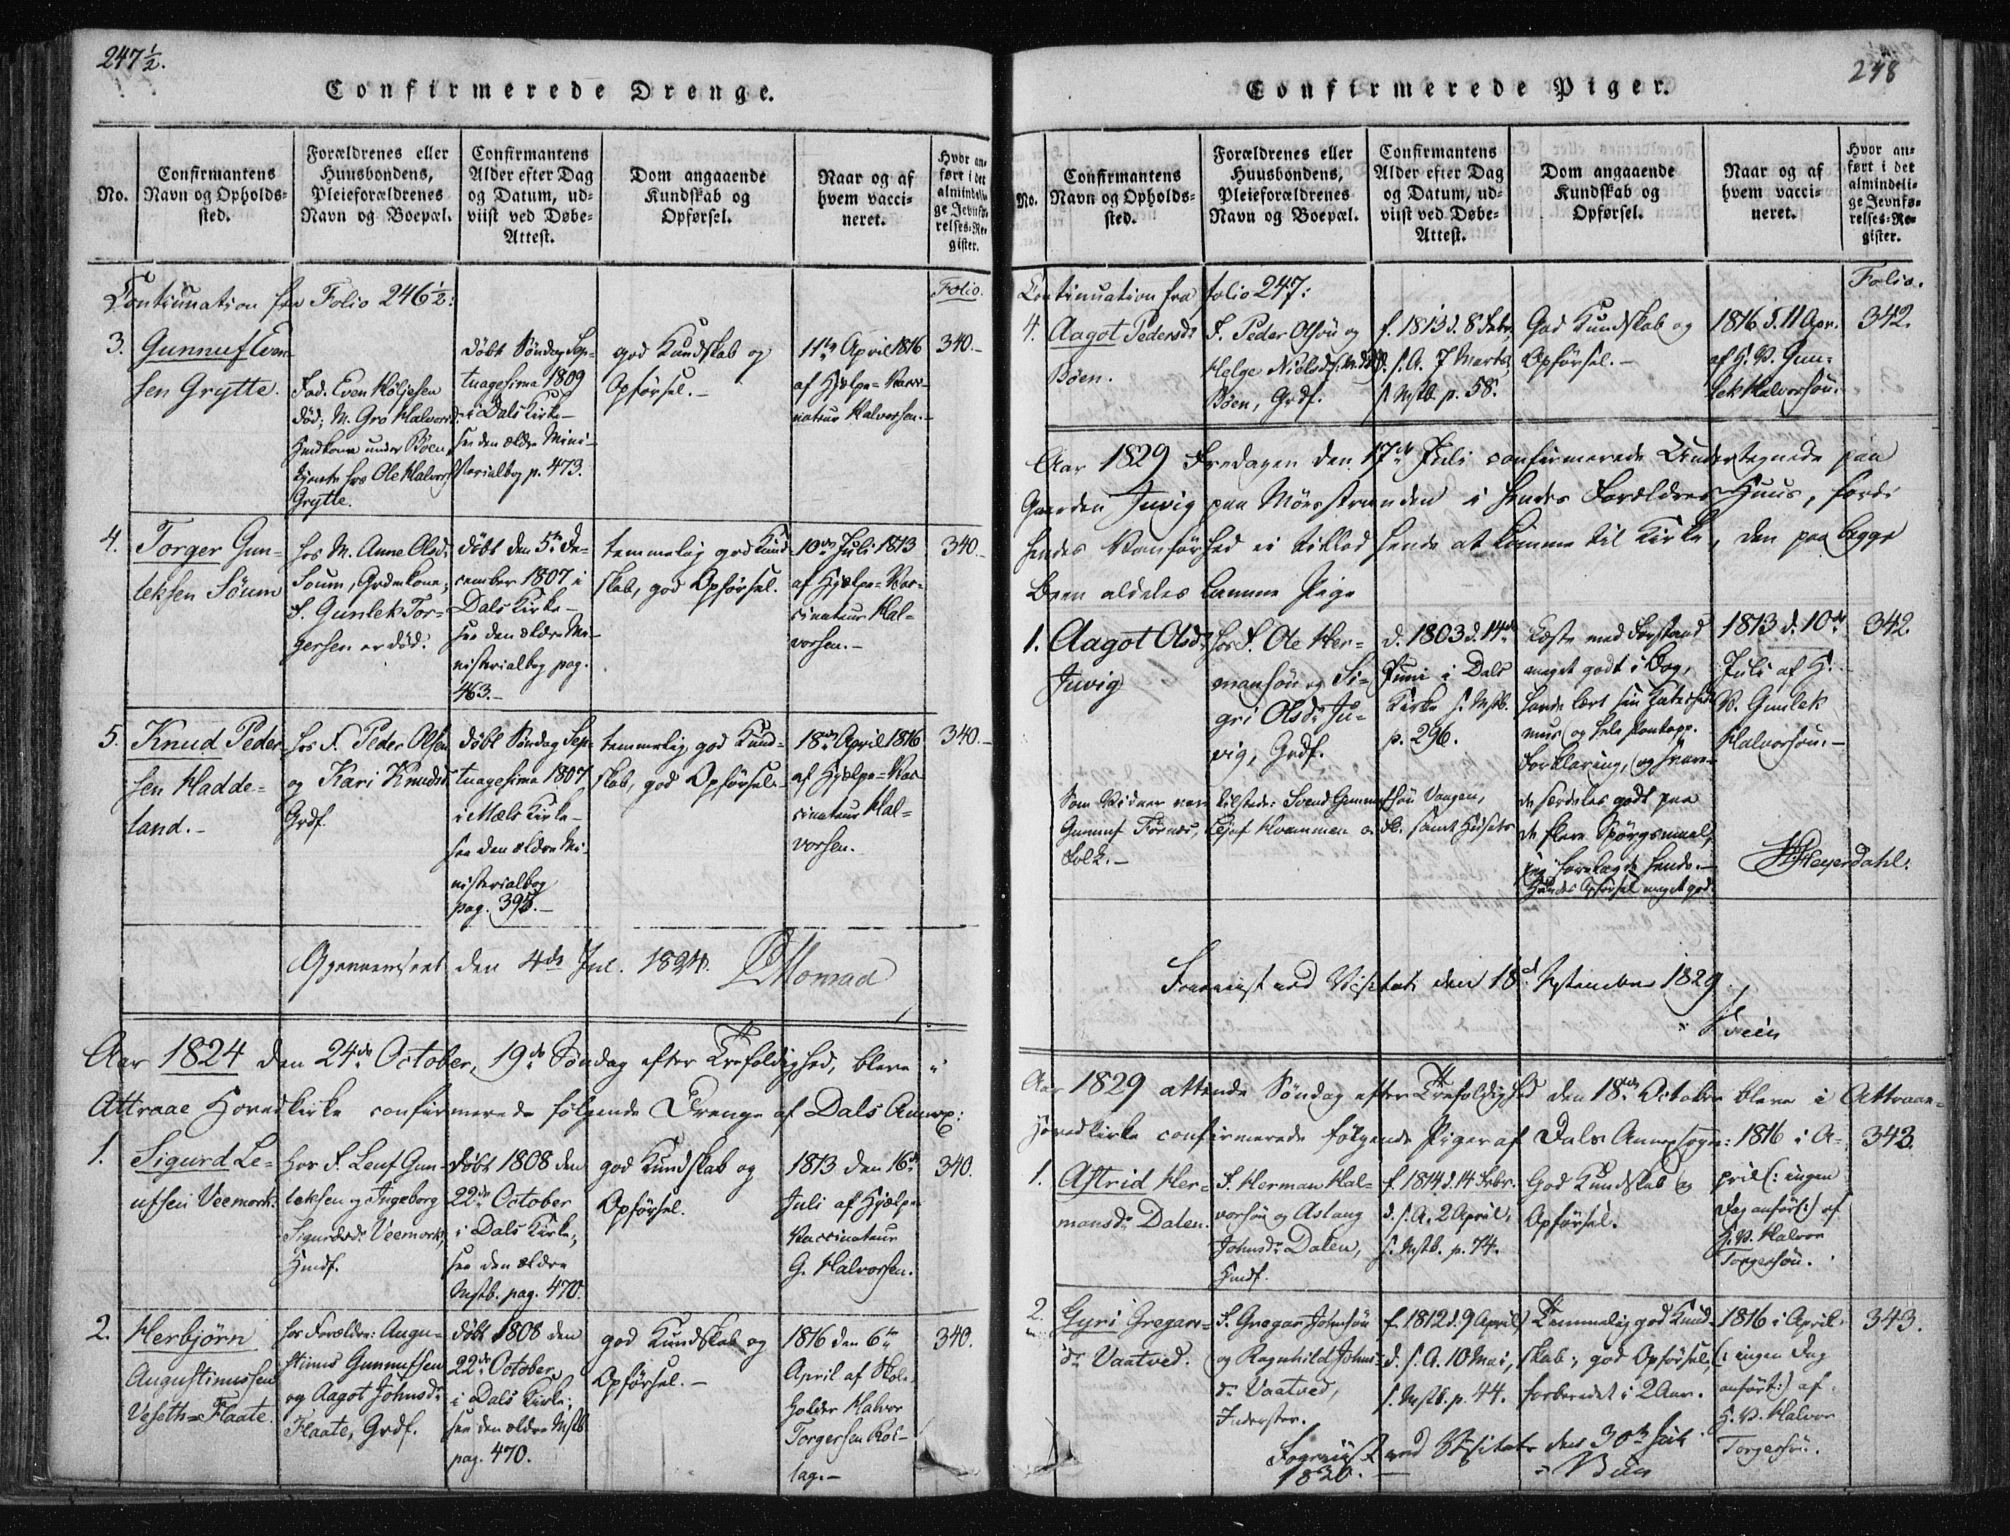 247½.
Confirmerede Drenge.
No.
Confirmantens
Navn og Opholds-
sted.
Forældrenes eller
Huusbondens,
Pleieforældrenes
Navn og Boepæl.
Confirmantens
Alder efter Dag
og Datum, ud-
viist ved Døbe-
Attest.
Dom angaaende
Kundskab og
Opførsel.
Naar og af
hvem vacci-
neret.
Hvor an-
ført i det
almindeli-
ge Jevnfø-
relses-Re-
gister.
Continuation fra Folio 246½:
Folio.
3.
Gunnuf Even-
sen Grytte.
Fad. Even Høljesen
død; M. Gro Halvorsd.
Huuskone under Bøen,
tjente hos Ole Halvors
Grytte.
døbt Søndag Sep-
tuagesima 1809
i Dals Kirke-
see den ældre Mini-
sterialbog p. 473.
god Kundskab og
Opførsel.-
11te April 1816
af Hjælpe-Vacci-
nateur Halvorsen.-
340.-
4.
Torger Gun-
leksen Söum
hos M. Anne Olsd.
Soum, Grdmkone;
F. Gunlek Tor-
gersen er død.
døbt den 5te De-
cember 1807 i
Dals Kirke-
see den ældre Mi-
nisterialbog pag.
463.-
temmelig god Kund-
skab, god Opførsel.
10de Juli 1813
af Hjælpe-Vac-
cinateur Hal-
vorsen.-
340.-
5.
Knud Peder-
sen Hadde-
land.-
hos F. Peder Olsen
og Kari Knudsd.
Grdf.
døbt Søndag Sep-
tuagesima 1807
i Mæls Kirke-
see den ældre Mi-
nisterialbog
pag. 395.-
temmelig god Kund-
skab, god Opførsel.-
18de April 1816
af Hjælpe-Vac-
cinateur Hal-
vorsen.
340.-
Gjennemseet den 4de Jul. 1824. Monrad
Aar 1824 den 24de October, 19de Søndag efter Trefoldighed, bleve i
Attraae Hovedkirke confirmerede følgende Drenge af Dals Annex:
1.
Sigurd Le-
ufsen Veemork.
Hos F. Leuf Gun-
leksen og Ingeborg
Sigurdsd. Veemork,
Hmdf.
døbt 1808 den
22de October
i Dals Kirke;
see den ældre
Mstb. pag. 470.
god Kundskab og
Opførsel.
1813 den 16de
Juli af Hjælpe-
Vaccinateur
G. Halvorsen.
340.
2.
Herbjörn
Augustinussen
Veseth-Flaate.
hos Forældre: Augu-
stinus Gunnufsen
og Aagot Johnsdr
Flaate, Grdf.
døbt 1808 den
22de October
i Dals Kirke;
see den ældre Mstb.
pag. 470.
god Kundskab og
Opførsel.-
1816 den 6te
April af Skole-
holder Halvor
Torgersen Rol-
lag.-
340.
248
Confirmerede Piger.
No.
Confirmantens
Navn og Opholds-
sted.
Forældrenes eller
Huusbondens,
Pleieforældrenes
Navn og Boepæl.
Confirmantens
Alder efter Dag
og Datum, ud-
viist ved Døbe-
Attest.
Dom angaaende
Kundskab og
Opførsel.
Naar og af
hvem vacci-
neret.
Hvor an-
ført i det
almindeli-
ge Jevnfø-
relses-Re-
gister.
Continuation fra folio 247:
Folio.
4.
Aagot Pedersdr
Böen.
F. Peder Olsön og
Helge Nielsdr
Böen, Grdf.
f. 1813 d. 8 Febr.
d. s. A. 7 Marts,
s. Mstb. p. 58.
God Kundskab og
Opførsel.-
1816 d. 11 Apr.
af H. V. Gun-
lek Halvorsön.
342.
Aar 1829 Fredagen den 17de Juli confirmerede Undertegnede paa
Gaarden Juvig paa Mösstranden i hendes Forældres Huus, fordi
hendes Vanførhed ei tillod hende at komme til Kirke, den paa begge
Been aldeles lamme Pige
1.
Aagot Olsdr
Juvig
hos F. Ole Her-
mansön og Si-
gri Olsdr Ju-
vig, Grdf.
d. 1803 d. 14de
Juni i Dals
Kirke s. Mstb.
p. 296.
Læste med Forstand
meget godt i Bog,
havde lært sin Catechis-
mus og hele Pontopp.
Forklaring, og svare-
de særdeles godt paa
de fleste Spörgsmaal,
jeg forelagde hende.-
Hendes Opførsel meget god.
1813 d. 10de
Juli af H.
V. Gunlek
Halvorsön.-
342.
Som Vidner vare tilstede: Svend Gunnufsön Vaagen,
Gunnuf Förnæs, Lejuf Kvammen o. fl. samt Husets
Folk.-
Heyerdahl.
Foreviist ved Visitats den 18d September 1829.
Aar 1829 attende Søndag efter Trefoldighed den 18de October bleve i Attraae-
Hovedkirke confirmerede følgende Piger af Dals Annexsogn:
1.
Astrid Her-
mansdr Dalen.
F. Herman Hal-
vorsön og Aslaug
Johnsdr Dalen,
Hmdf.
f. 1814 d. 14 Febr.
d. s. A. 2 April,
s. Mstb. p. 74.
God Kundskab og
Opførsel.
1816 i A-
pril (: ingen
Dag anfört:) af
H. V. Halvor
Torgersön.
343.
2.
Gyri Gregars-
dr Vaatved.
F. Gregar Johnsön
og Ragnhild Johns-
dr Vaatved,
Inderster.
f. 1812 d. 9 April,
d. s. A. 10 Mai,
s. Mstb. p. 44.
Temmelig god Kund-
skab, god Opførsel,
forberedet i 2 Aar.
1816 i April
(: ingen Dag
anfört:) af
H. V. Halvor
Torgersön.
343.
Foreviist ved Visitats den 30te Juli
1830.